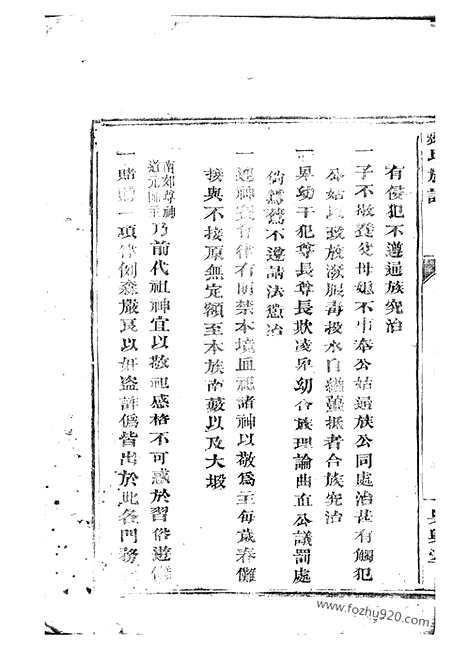 氏族譜
有侵犯不遵通族究治
一子不敬養父母媳不事奉公姑通族公同處治甚有觸犯
公姑以致放潑服毒投水自縊藉抵者合族究治
一卑幼干犯尊長尊長欺凌卑幼合族理論曲直公議罰處
倘鴟鶩不遵請法懲治
一迎神賽會律有明禁本境血祀諸神以敬為主每歲春儺
接與不接原無定額至本族南菽以及大塅
南郊尊神道元師主乃前代祖神宜以敬祀感格不可惑於習俗遊
一賭博一項律例森嚴良以奸盜詐偽皆出於此各門務
www.fozhu920.com